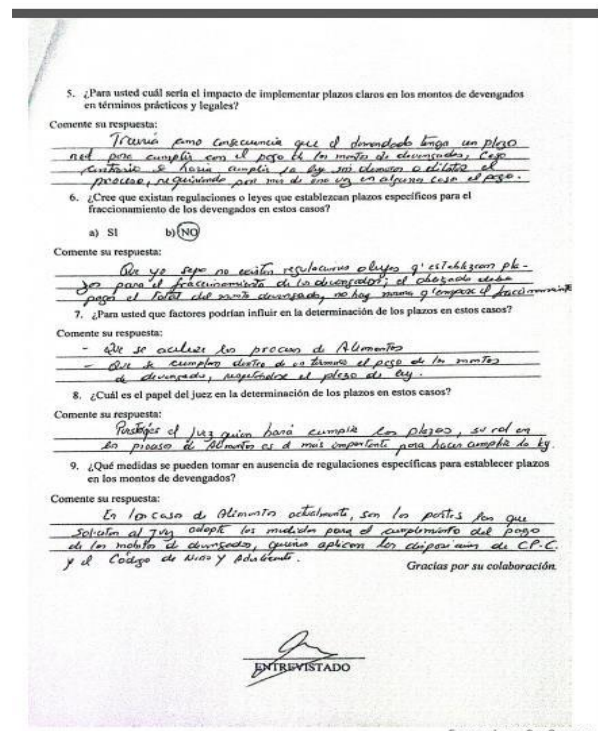 5. ¿Para usted cuál sería el impacto de implementar plazos claros en los montos de devengados
en términos prácticos y legales?
Comente su respuesta:
Traería como consecuencia que el demandado tenga un plazo
para cumplir con el pago de los montos de devengados, caso
contrario se haría cumplir la ley sin demoras o dilatar el
proceso, requiriendo por más de una vez en alguna caso el pago.
6. ¿Cree que existan regulaciones o leyes que establezcan plazos específicos para el
fraccionamiento de los devengados en estos casos?
a) SI b) NO
Comente su respuesta:
Que yo sepa no existen regulaciones o leyes q' establezcan pla-
zos para el fraccionamiento de los devengados; el obligado debe
pagar el total del monto devengado, no hay norma q' ampare el fraccionamiento
7. ¿Para usted que factores podrían influir en la determinación de los plazos en estos casos?
Comente su respuesta:
- Que se los procesos de Alimentos
- Que se cumplan dentro de un termino el pago de los montos
de devengados, respetándose el plazo de ley.
8. ¿Cuál es el papel del juez en la determinación de los plazos en estos casos?
Comente su respuesta:
el juez quien hará cumplir los plazos, su rol en
los proceso de Alimentos es el más importante para hacer cumplir la ley.
9. ¿Qué medidas se pueden tomar en ausencia de regulaciones específicas para establecer plazos
en los montos de devengados?
Comente su respuesta:
En los casos de Alimentos actualmente, son las partes las que
solicitan al Juez adopte las medidas para el cumplimiento del pago
de los montos de devengados, quienes aplican las disposiciones de C.P.C.
y el Código de Niño y Adolescente.
Gracias por su colaboración.
ENTREVISTADO